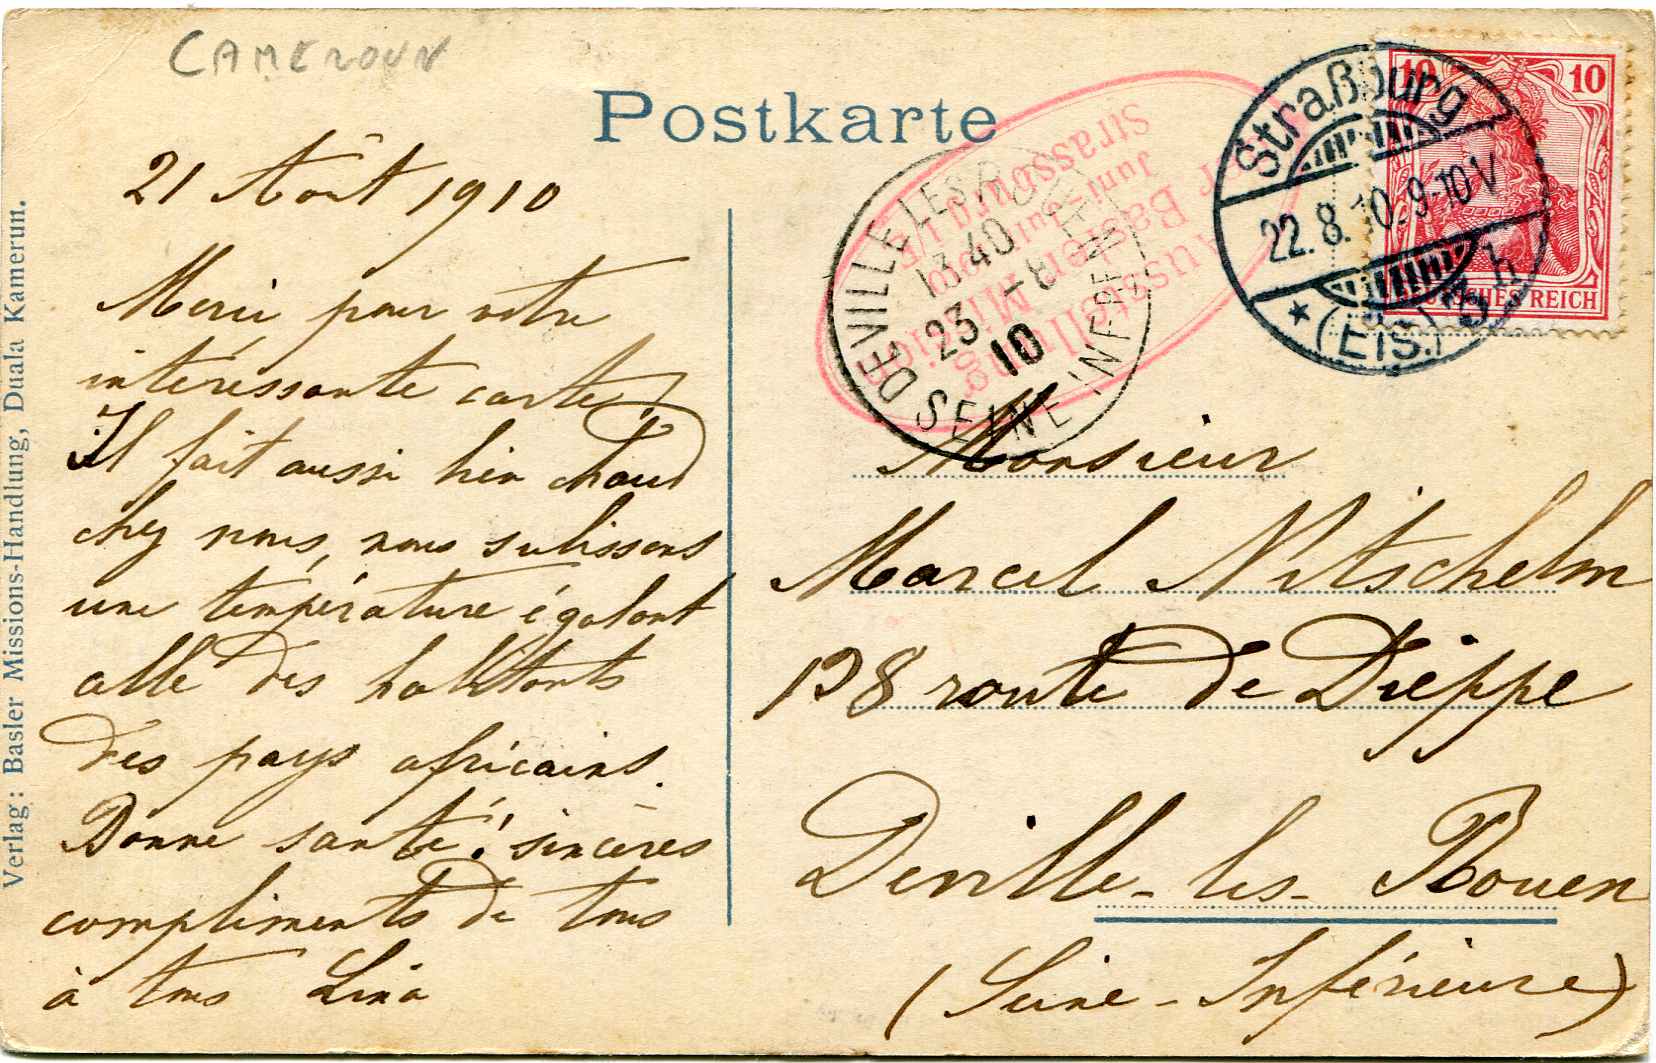 CAMEROUN
Postkarte
21 Août 1910
Merci pour votre
intéressante carte!
Il fait aussi bien chaud
chez nous, nous subissons
une température égalant
celle des habitants
des pays africains.
Bonne santé! sincères
compliments de tous
à tous Lina
Verlag: Basler Missions-Handlung, Duala Kamerun.
Ausstellung
der Basler Mission
Juni-Juli 1910
Strassburg i/E
DEVILLE LES ROUEN
13 40
23 -8
10
SEINE INFRE
Straßburg
22.8.10.9-10V
* (Els.) 3 h
10 10
DEUTSCHES REICH
Monsieur
Marcel Nitschelm
128 route de Dieppe
Deville-les-Rouen
(Seine-Inférieure)